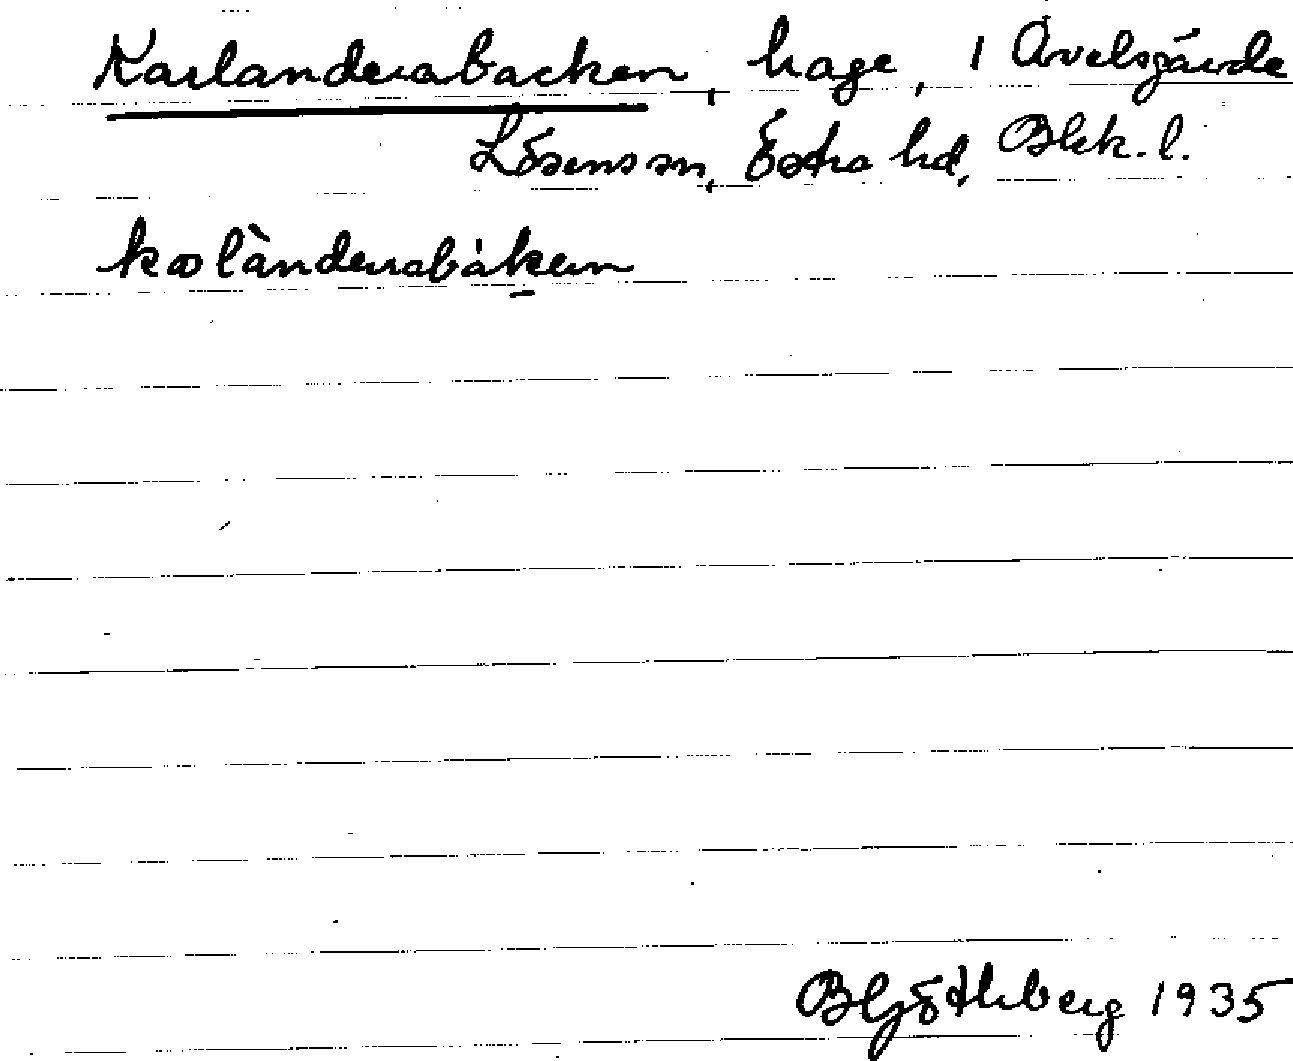 Karlandersbacken, hage, i Avelsgärde
Lösens sn, Östra hd, Blek. l.
kalàndersbáken
B Göthberg 1935